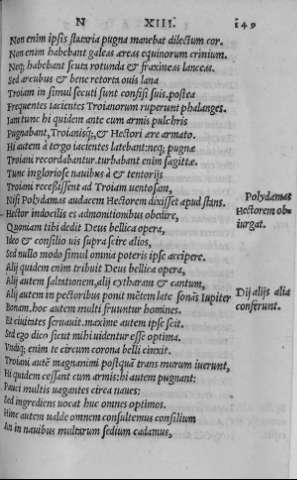 N XIII. 149
Non enim ipsis stataria pugna manebat dilectum cor.
Non enim habebant galeas æreas equinorum crinium.
Neq; habebant scuta rotunda & fraxineas lanceas.
Sed arcubus & bene retorta ouis lana
Troiam in simul secuti sunt confisi suis. postea
Frequentes iacientes Troianorum ruperunt phalanges.
Iam tunc hi quidem ante cum armis pulchris
Pugnabant, Troianisq;, & Hectori ære armato.
Hi autem à tergo iacientes latebant: neq; pugnæ
Troiani recordabantur. turbabant enim sagittæ.
Tunc ingloriose nauibus à & tentorijs
Troiani recessissent ad Troiam uentosam,
Nisi Polydamas audacem Hectorem dixisset apud stans.
Polydamas
Hectorem ob
iurgat.
Hector indocilis es admonitionibus obedire,
Quoniam tibi dedit Deus bellica opera,
Ideo & consilio uis supra scire alios,
Sed nullo modo simul omnia poteris ipse accipere.
Alij quidem enim tribuit Deus bellica opera,
Alij autem saltationem, alij cytharam & cantum,
Alij autem in pectoribus ponit mẽtem late sonãs Iupiter
Dij alijs alia
conferunt.
Bonam, hoc autem multi fruuntur homines.
Et ciuitates seruauit. maxime autem ipse scit.
Sed ego dico sicut mihi uidentur esse optima.
Vndiq; enim te circum corona belli cinxit.
Troiani autẽ magnanimi postquã trans murum iuerunt,
Hi quidem cessant cum armis: hi autem pugnant:
Pauci multis uagantes circa naues:
Sed ingrediens uoca huc omnes optimos.
Hinc autem ualde omnem consultemus consilium
An in nauibus multarum sedium cadamus,